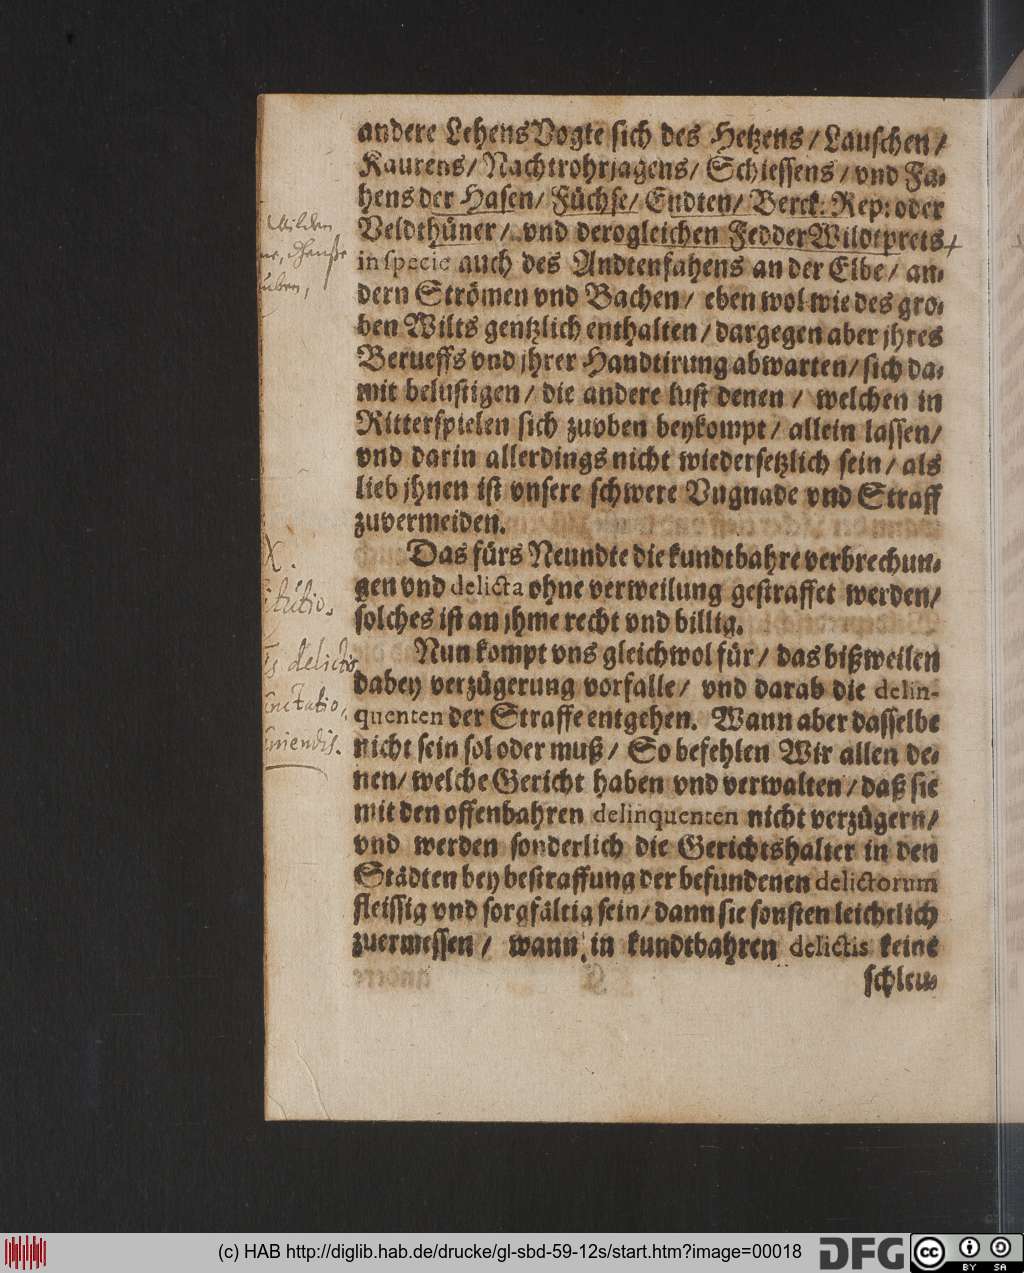 andere LehensVogte sich des Hetzens / Lauschen /
Kaurens / Nachtrohrjagens / Schiessens / vnd Fa-
hens der Hasen / Füchse / Endten / Berck: Rep: oder
Veldthüner / vnd derogleichen FedderWildtprets
in specie auch des Andtenfahens an der Elbe / an-
dern Strömen vnd Bachen / eben wol wie des gro-
ben Wilts gentzlich enthalten / dargegen aber jhres
Berueffs vnd jhrer Handtirung abwarten / sich da-
mit belustigen / die andere lust denen / welchen in
Ritterspielen sich zuvben beykompt / allein lassen /
vnd darin allerdings nicht wiedersetzlich sein / als
lieb jhnen ist vnsere schwere Vngnade vnd Straff
zuvermeiden.
Das fürs Neundte die kundtbahre verbrechun-
gen vnd delicta ohne verweilung gestraffet werden /
solches ist an jhme recht vnd billig.
Nun kompt vns gleichwol für / das bißweilen
dabey verzügerung vorfalle / vnd darab die delin-
quenten der Straffe entgehen. Wann aber dasselbe
nicht sein sol oder muß / So befehlen Wir allen de-
nen / welche Gericht haben vnd verwalten / daß sie
mit den offenbahren delinquenten nicht verzügern /
vnd werden sonderlich die Gerichtshalter in den
Städten bey bestraffung der befundenen delictorum
fleissig vnd sorgfältig sein / dann sie sonsten leichtlich
zuermessen / wann in kundtbahren delictis keine
schleu-
wilden
X.
delictis
(c) HAB http://diglib.hab.de/drucke/gl-sbd-59-12s/start.htm?image=00018
DFG
cc
BY SA